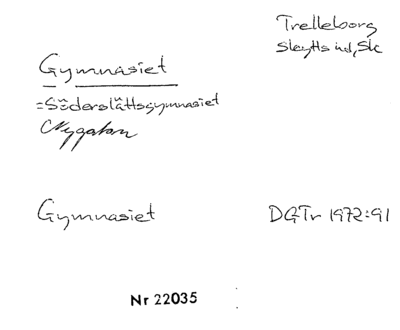 Trelleborg
Skytts hd, Sk
Gymnasiet
=Söderslättsgymnasiet
Nygatan
Gymnasiet
DGTr 1972:91
Nr 22035